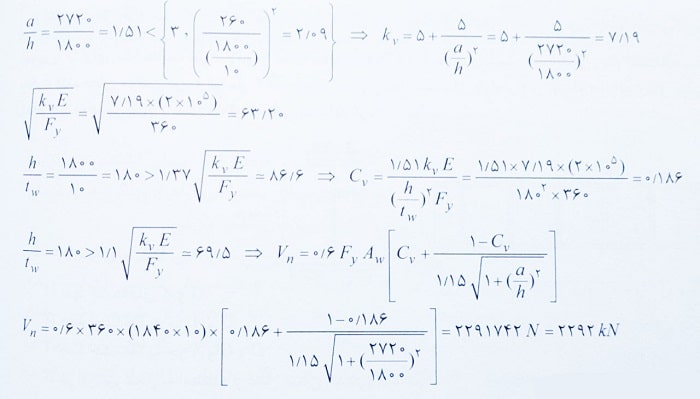 a/h = ۲۷۲۰/۱۸۰۰ = ۱/۵۱ < { ۳ , ( ۲۶۰ / (۱۸۰۰/۱۰) )^۲ = ۲/۰۹ } ⇒ k_v = ۵ + ۵/(a/h)^۲ = ۵ + ۵/(۲۷۲۰/۱۸۰۰)^۲ = ۷/۱۹
√(k_v E / F_y) = √(۷/۱۹×(۲×۱۰^۵) / ۳۶۰) = ۶۳/۲۰
h/t_w = ۱۸۰۰/۱۰ = ۱۸۰ > ۱/۳۷ √(k_v E / F_y) = ۸۶/۶ ⇒ C_v = ۱/۵۱ k_v E / ((h/t_w)^۲ F_y) = ۱/۵۱×۷/۱۹×(۲×۱۰^۵) / (۱۸۰^۲×۳۶۰) = ۰/۱۸۶
h/t_w = ۱۸۰ > ۱/۱ √(k_v E / F_y) = ۶۹/۵ ⇒ V_n = ۰/۶ F_y A_w [ C_v + (۱−C_v) / (۱/۱۵ √(۱+(a/h)^۲)) ]
V_n = ۰/۶×۳۶۰×(۱۸۴۰×۱۰)× [ ۰/۱۸۶ + (۱−۰/۱۸۶) / (۱/۱۵ √(۱+(۲۷۲۰/۱۸۰۰)^۲)) ] = ۲۲۹۱۷۴۲ N = ۲۲۹۲ kN